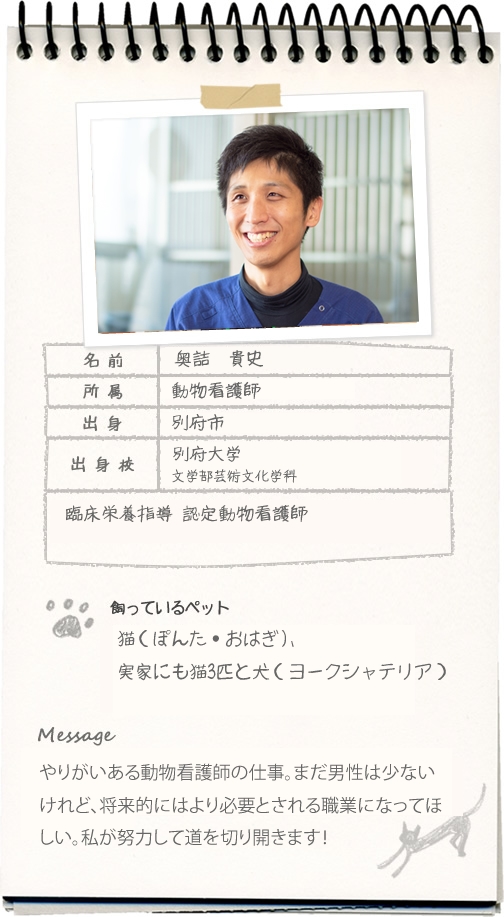 名前 奥詰 貴史
所属 動物看護師
出身 別府市
出身校 別府大学
文学部芸術文化学科
臨床栄養指導 認定動物看護師
飼っているペット
猫(ぽんた・おはぎ)、
実家にも猫3匹と犬(ヨークシャテリア)
Message
やりがいある動物看護師の仕事。まだ男性は少ない
けれど、将来的にはより必要とされる職業になってほ
しい。私が努力して道を切り開きます!